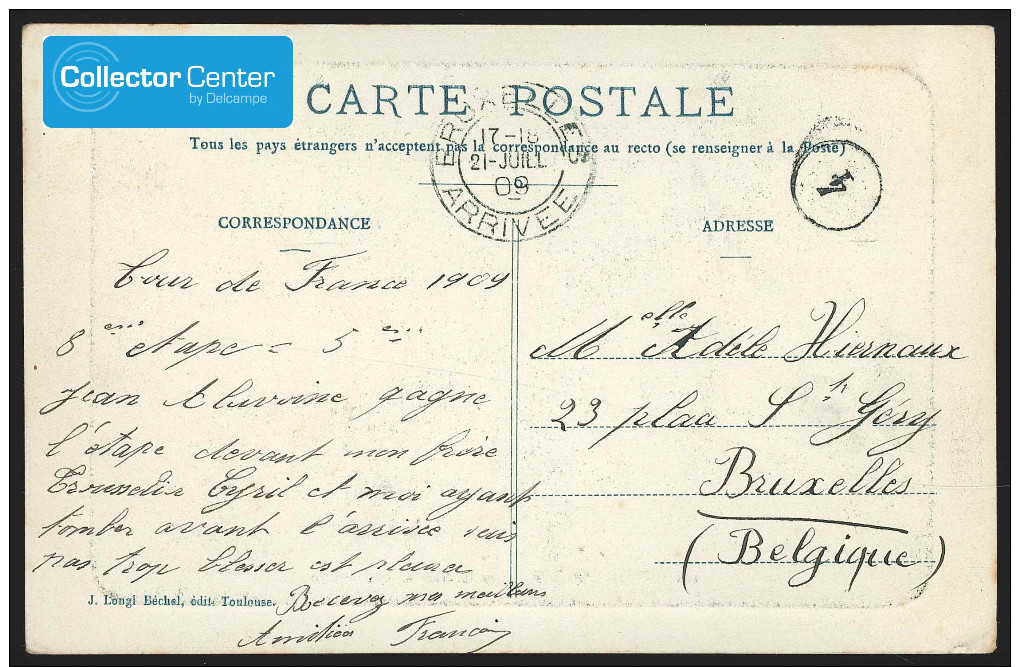 Collector Center
by Delcampe
CARTE POSTALE
Tous les pays étrangers n'acceptent pas la correspondance au recto (se renseigner à la Poste)
BRUXELLES
17-18
21-JUILL
09
ARRIVEE
4
CORRESPONDANCE
ADRESSE
Tour de France 1909
8 eme etape = 5 em
Jean Alavoine gagne
l'étape devant mon frère
Trousselier Cyril et moi ayant
tomber avant l'arrivée suis
pas trop blesser est
J. Longl Béchel, édit. Toulouse.
Recevez mes meilleurs
Amitiées François
Melle Adèle Hiernaux
23 plaa St Géry
Bruxelles
(Belgique)